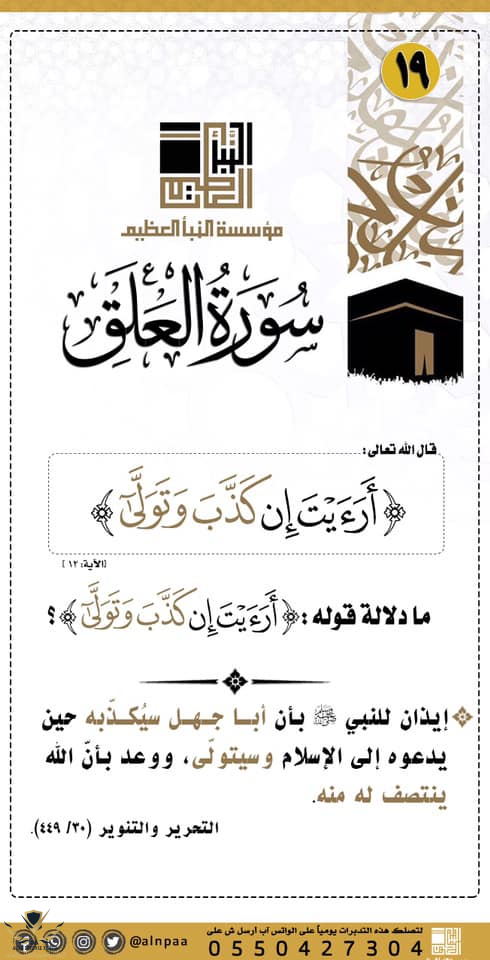 ١٩
النبأ العظيم
مؤسسة النبأ العظيم
سُورَةُ العَلَقِ
قال الله تعالى:
﴿أَرَءَيْتَ إِن كَذَّبَ وَتَوَلَّىٰٓ﴾
[الآية: ١٣]
ما دلالة قوله: ﴿أَرَءَيْتَ إِن كَذَّبَ وَتَوَلَّىٰٓ﴾؟
إيذان للنبي ﷺ بأن أبا جهل سيُكذّبه حين
يدعوه إلى الإسلام وسيتولّى، ووعد بأنّ الله
ينتصف له منه.
التحرير والتنوير (٣٠/ ٤٤٩).
لتصلك هذه التدبرات يومياً على الواتس آب ارسل ش على
0550427304
@alnpaa